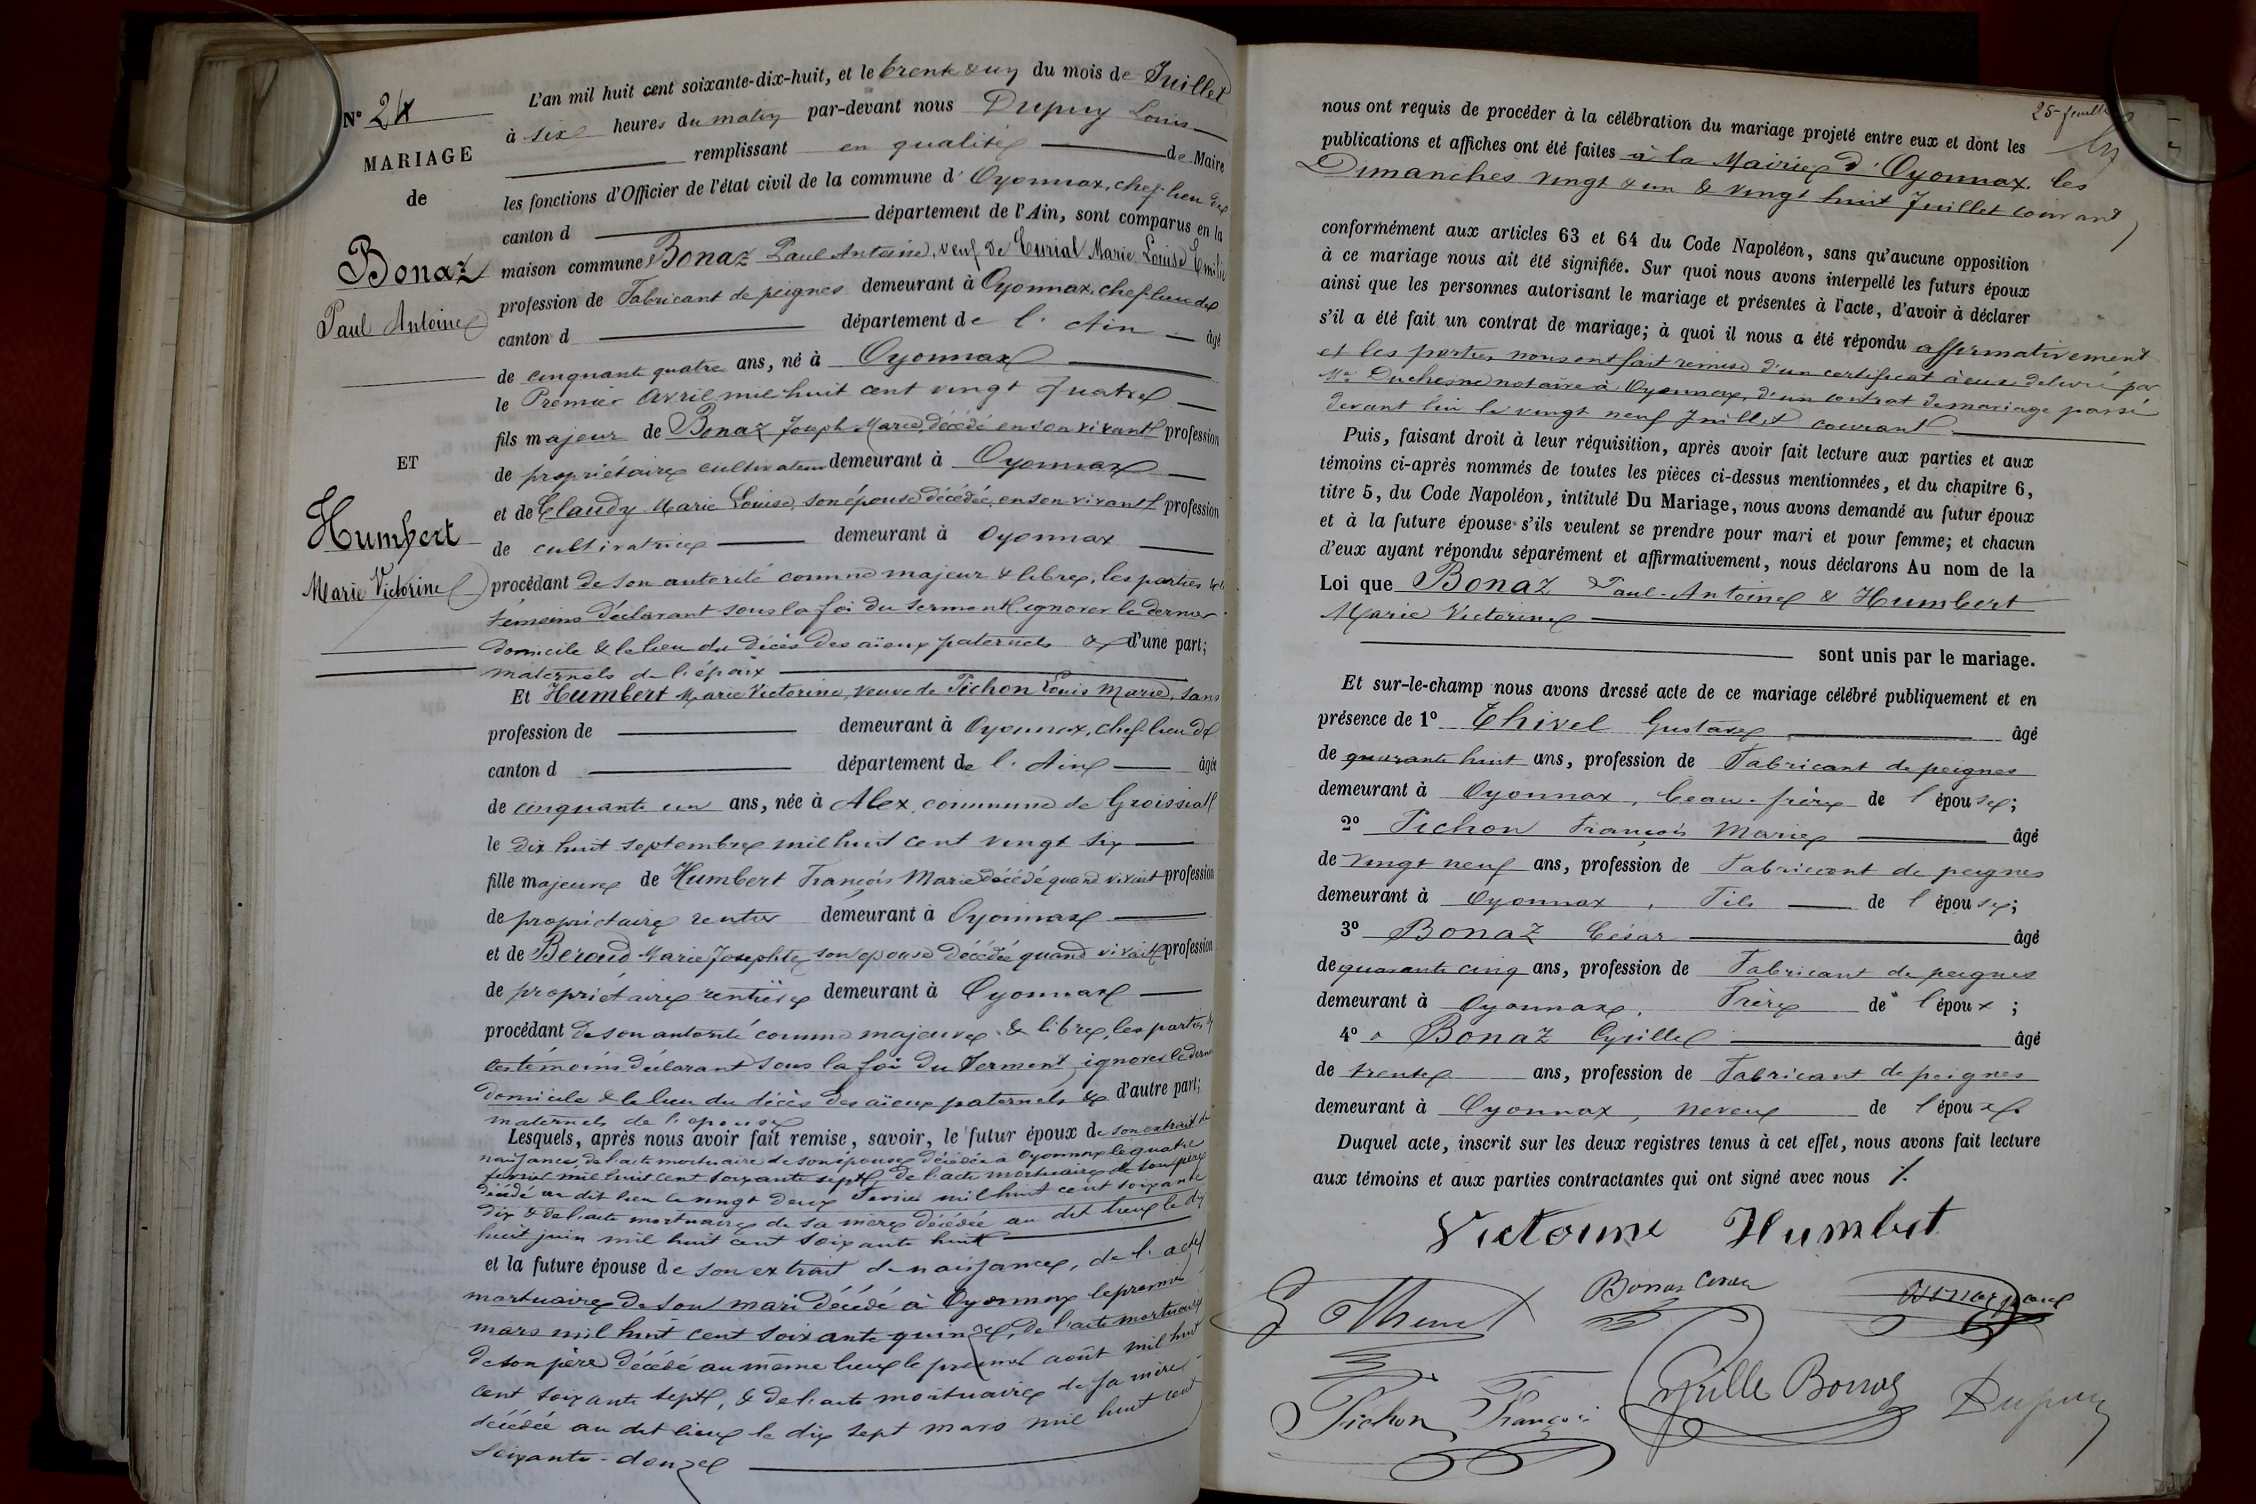 N° 24
MARIAGE
de
Bonaz
Paul Antoine
ET
Humbert
Marie Victorine
L'an mil huit cent soixante-dix-huit, et le trente & un du mois de Juillet
à six heures du matin par-devant nous Dupuy Louis
remplissant en qualité de Maire
les fonctions d'Officier de l'état civil de la commune d'Oyonnax, chef lieu de
canton d département de l'Ain, sont comparus en la
maison commune Bonaz Paul Antoine, veuf de Marie Louise Emilie
profession de Fabricant de peignes demeurant à Oyonnax, chef-lieu de
canton d département de l'Ain âgé
de cinquante quatre ans, né à Oyonnax
le Premier Avril mil huit cent vingt quatre
fils majeur de Bonaz Joseph Marie, décédé en son vivant profession
de propriétaire cultivateur demeurant à Oyonnax
et de Claudy Marie Louise, son épouse décédée en son vivant profession
de cultivatrice demeurant à Oyonnax
procédant de son autorité comme majeur & libre, les parties & les
témoins déclarant sous la foi du serment ignorer le dernier
domicile & le lieu du décès des aïeux paternels & d'une part;
maternels de l'époux
Et Humbert Marie Victorine, veuve de Pichon Louis Marie, sans
profession de demeurant à Oyonnax, chef-lieu de
canton d département de l'Ain âgée
de cinquante un ans, née à Alex, commune de Groissiat
le dix huit septembre mil huit cent vingt six
fille majeure de Humbert François Marie décédé quand vivait profession
de propriétaire rentier demeurant à Oyonnax
et de Beroud Marie Josephte, son épouse décédée quand vivait profession
de propriétaire rentière demeurant à Oyonnax
procédant de son autorité comme majeure & libre, les parties &
les témoins déclarant sous la foi du serment ignorer le dernier
domicile & le lieu du décès des aïeux paternels & d'autre part;
maternels de l'épouse
Lesquels, après nous avoir fait remise, savoir, le futur époux de son extrait de
naissance, de l'acte mortuaire de son épouse décédée à Oyonnax le quatre
février mil huit cent soixante sept, de l'acte mortuaire de son père
décédé au dit lieu le vingt deux Février mil huit cent soixante
dix & de l'acte mortuaire de sa mère décédée au dit lieu le dix
huit juin mil huit cent soixante huit
et la future épouse de son extrait de naissance, de l'acte
mortuaire de son mari décédé à Oyonnax le premier
mars mil huit cent soixante quinze, de l'acte mortuaire
de son père décédé au même lieu le premier août mil huit
cent soixante sept, & de l'acte mortuaire de sa mère
décédée au dit lieu le dix sept mars mil huit cent
soixante-douze
25e feuille
nous ont requis de procéder à la célébration du mariage projeté entre eux et dont les
publications et affiches ont été faites à la Mairie d'Oyonnax les
Dimanches vingt & un & vingt huit Juillet courant
conformément aux articles 63 et 64 du Code Napoléon, sans qu'aucune opposition
à ce mariage nous ait été signifiée. Sur quoi nous avons interpellé les futurs époux
ainsi que les personnes autorisant le mariage et présentes à l'acte, d'avoir à déclarer
s'il a été fait un contrat de mariage; à quoi il nous a été répondu affirmativement
et les parties nous ont fait remise d'un certificat à eux délivré par
Me Duchesne notaire à Oyonnax, d'un contrat de mariage passé
devant lui le vingt neuf Juillet courant
Puis, faisant droit à leur réquisition, après avoir fait lecture aux parties et aux
témoins ci-après nommés de toutes les pièces ci-dessus mentionnées, et du chapitre 6,
titre 5, du Code Napoléon, intitulé Du Mariage, nous avons demandé au futur époux
et à la future épouse s'ils veulent se prendre pour mari et pour femme; et chacun
d'eux ayant répondu séparément et affirmativement, nous déclarons Au nom de la
Loi que Bonaz Paul-Antoine & Humbert
Marie Victorine
sont unis par le mariage.
Et sur-le-champ nous avons dressé acte de ce mariage célébré publiquement et en
présence de 1° Thivel Gustave âgé
de quarante huit ans, profession de Fabricant de peignes
demeurant à Oyonnax, beau-frère de l'épouse;
2° Pichon François Marie âgé
de vingt neuf ans, profession de Fabricant de peignes
demeurant à Oyonnax, Fils de l'épouse;
3° Bonaz César âgé
de quarante cinq ans, profession de Fabricant de peignes
demeurant à Oyonnax, Frère de l'époux;
4° Bonaz Cyrille âgé
de trente ans, profession de Fabricant de peignes
demeurant à Oyonnax, neveu de l'époux.
Duquel acte, inscrit sur les deux registres tenus à cet effet, nous avons fait lecture
aux témoins et aux parties contractantes qui ont signé avec nous
Victorine Humbert
G Thivel Bonaz César Bonaz Paul
Pichon François Cyrille Bonaz Dupuy